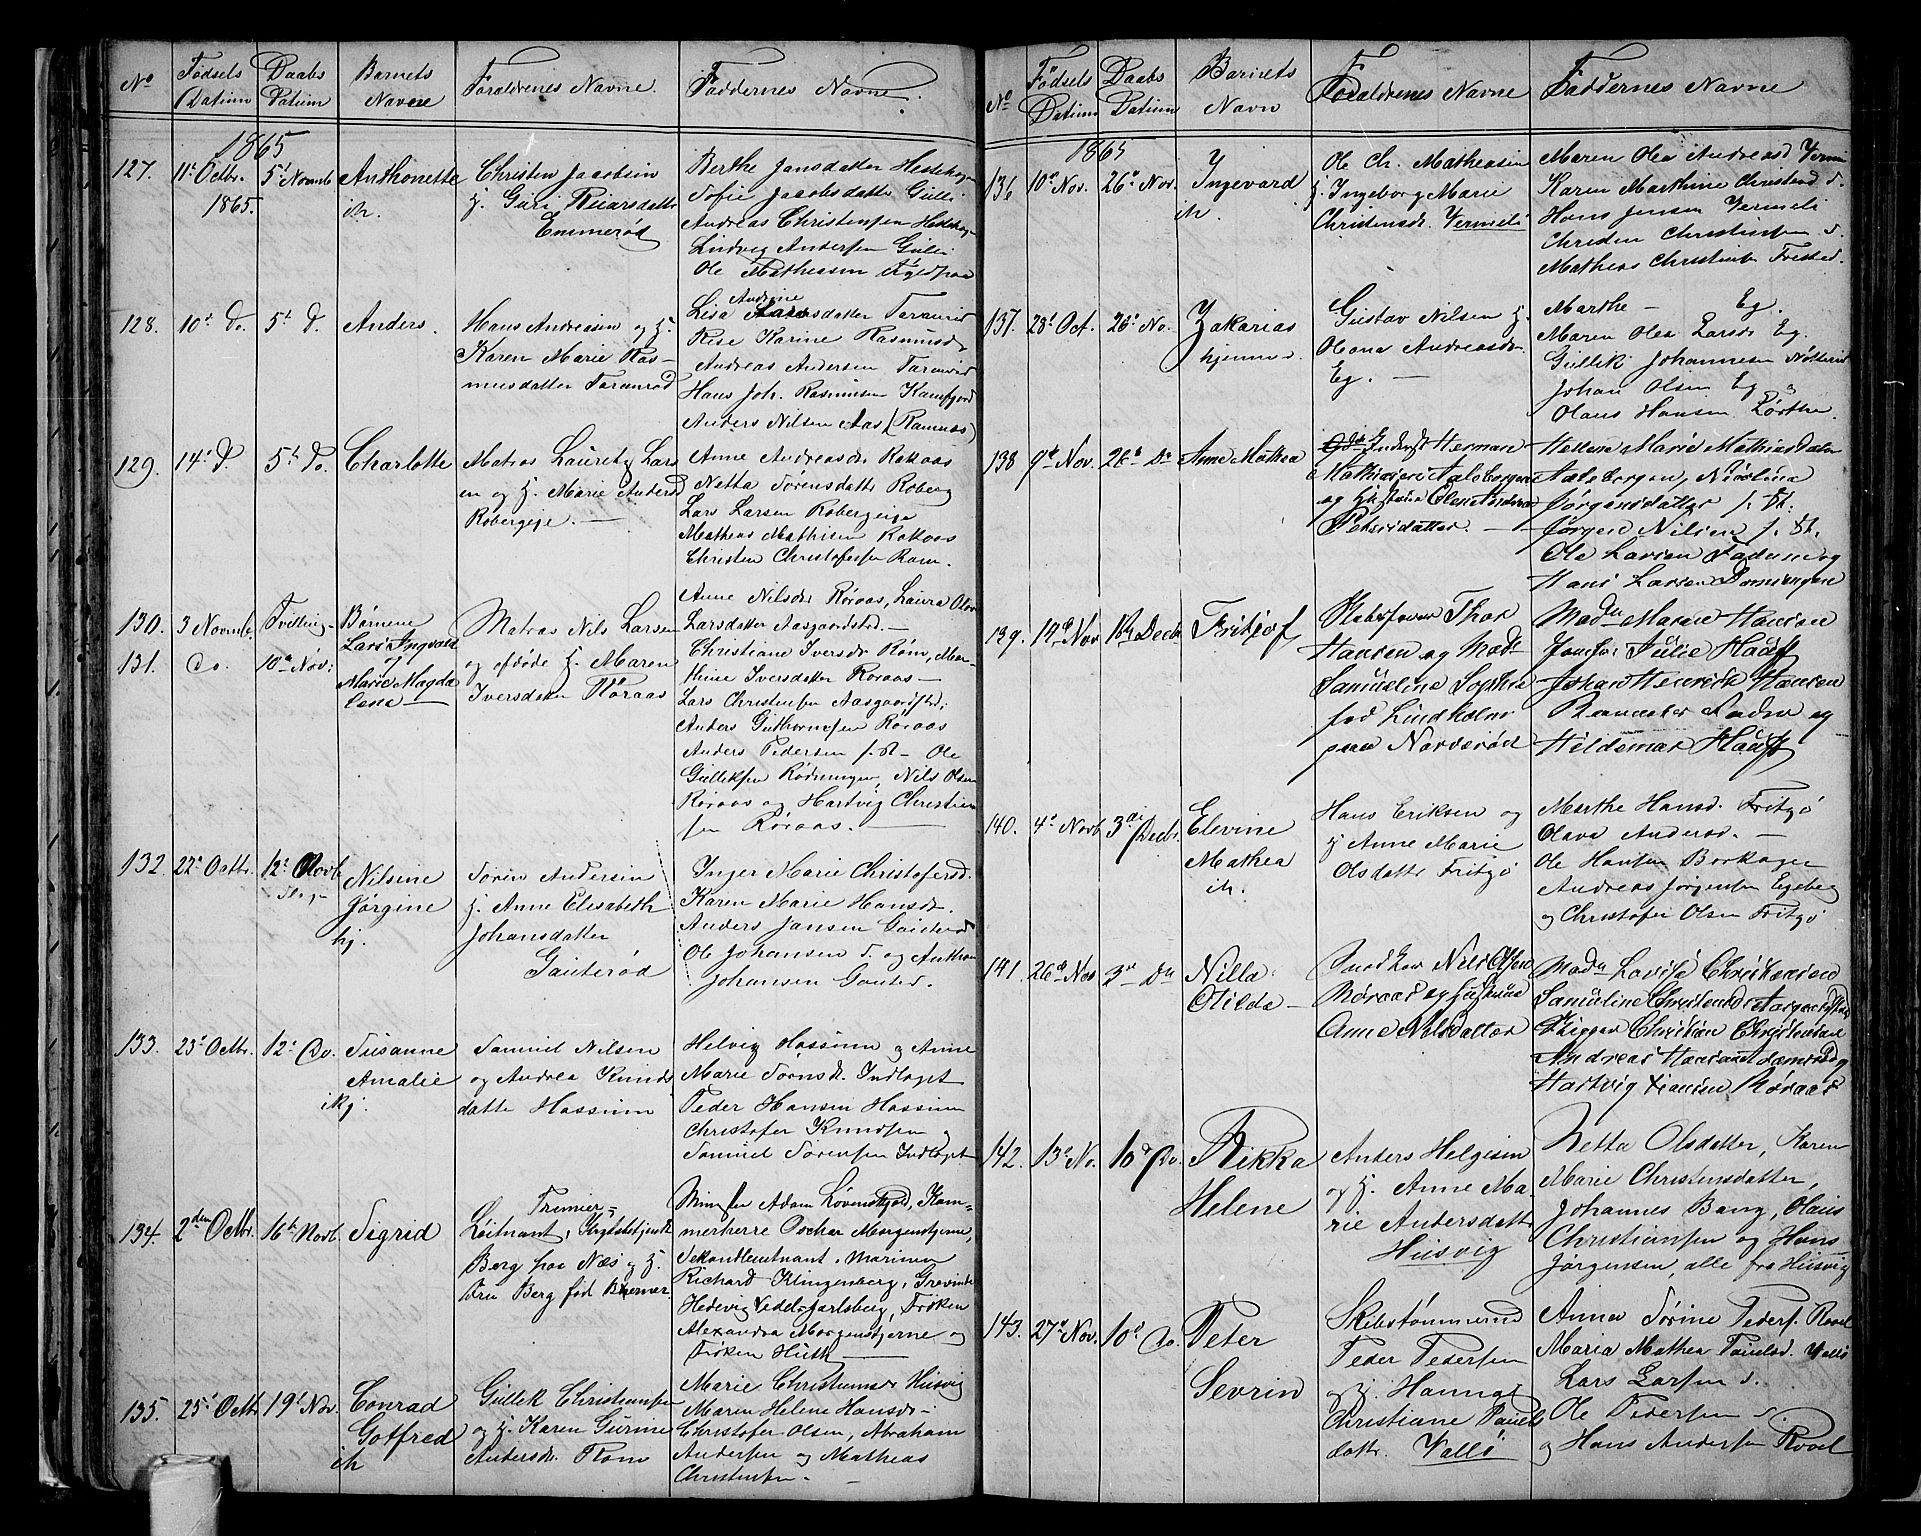 No Fødsels Datum Daabs Datum Barnets Navn Foraldrenes Navne. Faddernes Navne.
1865
127. 11t Octbr. 1865. 5t Novmb Anthonette ik.
Christen Jacobsen
H. Guri Riersdatter
Emmerød
Berthe Jansdatter Hesteha
Sofie Jacobsdatter Gulli
Andreas Christensen
Ludvig Andersen Gulli
Ole Matheasen
128. 10t Do. 5t D. Anders.
Hans Andreasen og H.
Karen Marie Ras-
musdatter Taranrød
Andrine
Lisa Larsdatter Taranrød
Rise Karine Rasmusdr
Andreas Andersen Taranrød
Hans Joh. Rasmusen Kamfjord
Anders Nilsen Aas (Ramnæs)
129. 14t D. 5t Do. Charlotte
Matros Lauritz Lars
en og H. Marie Andersd
Robergeje. —
Anne Andreasdr Rakaas
Netta Sørensdatter Roberg
Lars Larsen Robergeje
Matheas Mathisen Rakaas
Christen Christofersen Ram.
130. 3 Novmb. Tvilling-
131. Do. 10de Nov.
Børnene
Lars Ingvald
og
Marie Magda
lena
Matros Nils Larsen
og afdøde H. Maren
Iversdatter Røraas
Anne Nilsdr Røraas, Laura Olava
Larsdatter Aasgaardstrd. —
Christiane Iversdr Røm, Mar-
thine Iversdatter Røraas —
Lars Christensen Aasgaardstrd.
Anders Guthormsen Røraas
Anders Pedersen f. St — Ole
Gulliksen Rødningen, Nils Olsen
Røraas og Hartvig Christian
sen Røraas. —
132. 22t Octbr. 12t Novb. Nilsine
Jørgine
hj.
Søren Andersen
H. Anne Elisabeth
Johansdatter
Gauterød
Inger Marie Christofersd.
Karen Marie Hansdr.
Anders Jansen Gauterød
Ole Johansen d. og Anthon
Johansen Gauterd.
133. 23t Octbr. 12t Do. Susanne
Amalie
ikj.
Samuel Nilsen
og Andrea Knuds
datter Hassum
Helvig Hassum og Anne
Marie Sørnsdr. Indlaget
Peder Hansen Hassum
Christofer Knudsen og
Samuel Sørensen Indlaget
134. 2den Octbr. 16t Novb. Sigrid
Premier=
Løitnant,
Berg paa Næs og H.
Fru Berg fød Bjerner.
Adam Løvenskjold, Kam-
merherre Oscar Morgenstjerne,
Sekondlieutnant i Marinen
Richard Klingenberg, Grevinde
Hedevig Wedel-Jarlsberg, Frøken
Alexandra Morgenstjerne og
Frøken Huth —
135. 25t Octbr. 19t Nov. Conrad
Gotfred
ik
Gullik Christiansen
og H. Karen Gurine
Andersdr. Ram
Marie Christiansdr Husvig
Maren Helene Hansdr —
Christofer Olsen, Abraham
Andersen og Matheas
Christensen. —
No Fødsels Datum Daabs Datum Barnets Navn Foraldrenes Navne Faddernes Navne
1865
136 10de Nov. 26de Nov. Ingevard
ik.
Ole Ch. Matheasen
H. Ingeborg Marie
Christensdr. Vermeli
Maren Olea Andreasd Verme
Karen Marthine Christensd d.
Hans Jensen Vermeli
Christen Christensen d.
Matheas Christensen Frested.
137. 28t Oct. 26t No. Zakarias
hjemme d.
Gustav Nilsen H.
Olana Andreasdr
Eg. —
Marthe — Eg.
Maren Olea Larsdr Eg
Gullik Johannesen Nøtterød
Johan Olsen Eg
Olaus Hansen Lørthe.
138 9de Nov. 26de Do Anne Mathea
Herman
Mathiasen Aalsborgen
og Hustrue Olea Andrea
Petersdatter. —
Hellene Marie Mathiasdatter
Aalsborgen, Nicolina
Jørgensdatter f. St.
Jørgen Nilsen f. St.
Ole Larsen Fadum og
Hans Larsen
139. 12te Nov 1ste Decbr Fritjof
Skibsfører Thor
Hansen og Mad:
Samueline Sophia
fød Lindholm
paa Narverød
Mad: Maren Hansen
Jomfr. Julie Hauff
Johan Henrik Hansen
og
Hildemar Hauff
140. 4t Novb 3die Decbr. Elevine
Mathea
ik.
Hans Eriksen og
H Anne Marie
Olsdatter Fritzø
Marthe Hansd. Fritzø
Olava Andersd. —
Ole Hansen Borkager
Andreas Jørgensen Egeberg
og Christofer Olsen Fritzø
141. 26de Nov 3die Do Nilla
Otilda —
Snedker Nils Olsen
Røraas og Hustrue
Anne Nilsdatter
Mad: Lovise Christensen
Samuline Christensdr Aasgaardstrand
Skipper Christian Christensen
Andreas Hansen og
Hartvig Hansen Røraas
142. 13t No. 10d Do. Rikka
Helene
Anders Helgesen
og H. Anne Ma-
rie Andersdatter
Husvig
Netta Olsdatter, Karen
Marie Christensdatter,
Johannes Bang, Olaus
Christiansen og Hans
Jørgensen, alle fra Husvig
143. 27de Nov. 10d Do. Peter
Sevrin
Skibstømmermd
Peder Pedersen
og H. Hannge
Christiane Pauls
datr. Vallø
Anna Sørine Peders. Roael
Maria Mathea Paulsd. Vallø
Lars Larsen d.
Ole Pedersen d.
og Hans Andersen Roael